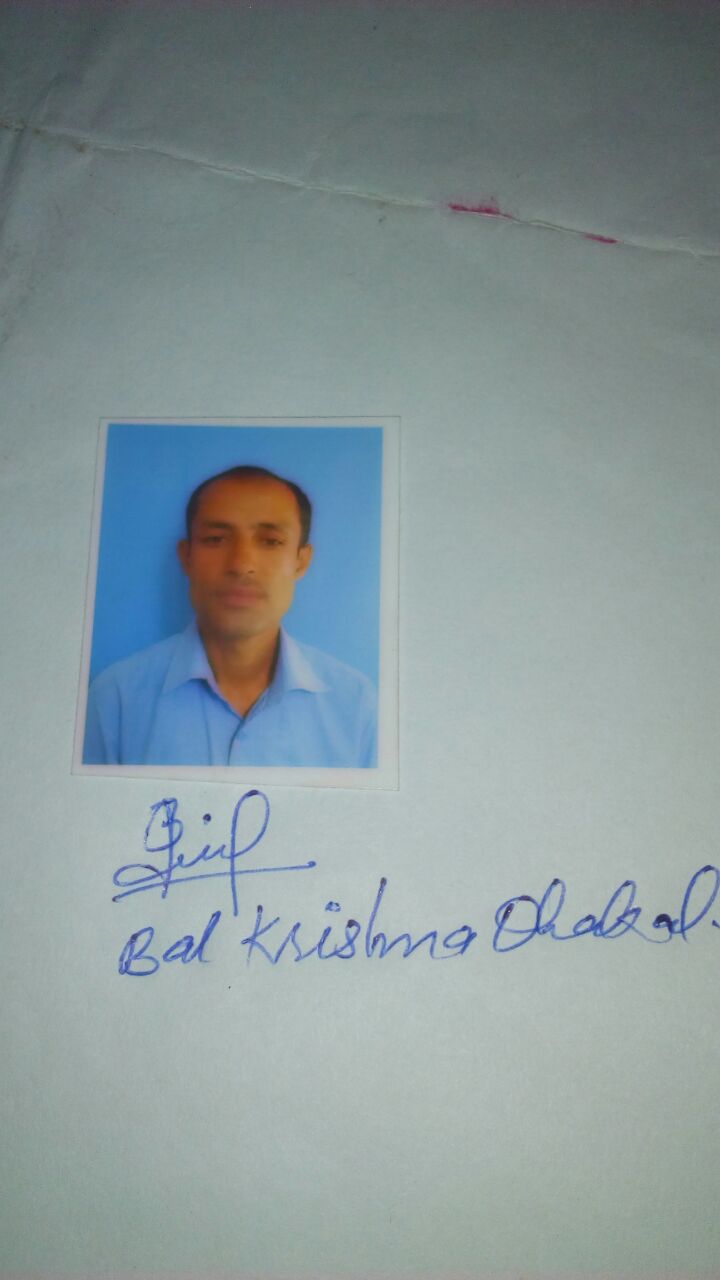 Bal Krishna Dhakal.